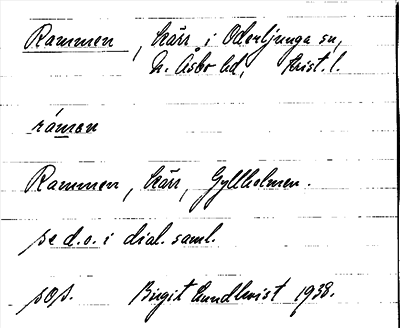 Rammen, kärr i Oderljunga sn,
N. Åsbo hd, Krist. l.
rámən
Rammen, kärr, Gyllholmen.
se d.o. i dial. saml.
sOs. Birgit Lundkvist 1938.